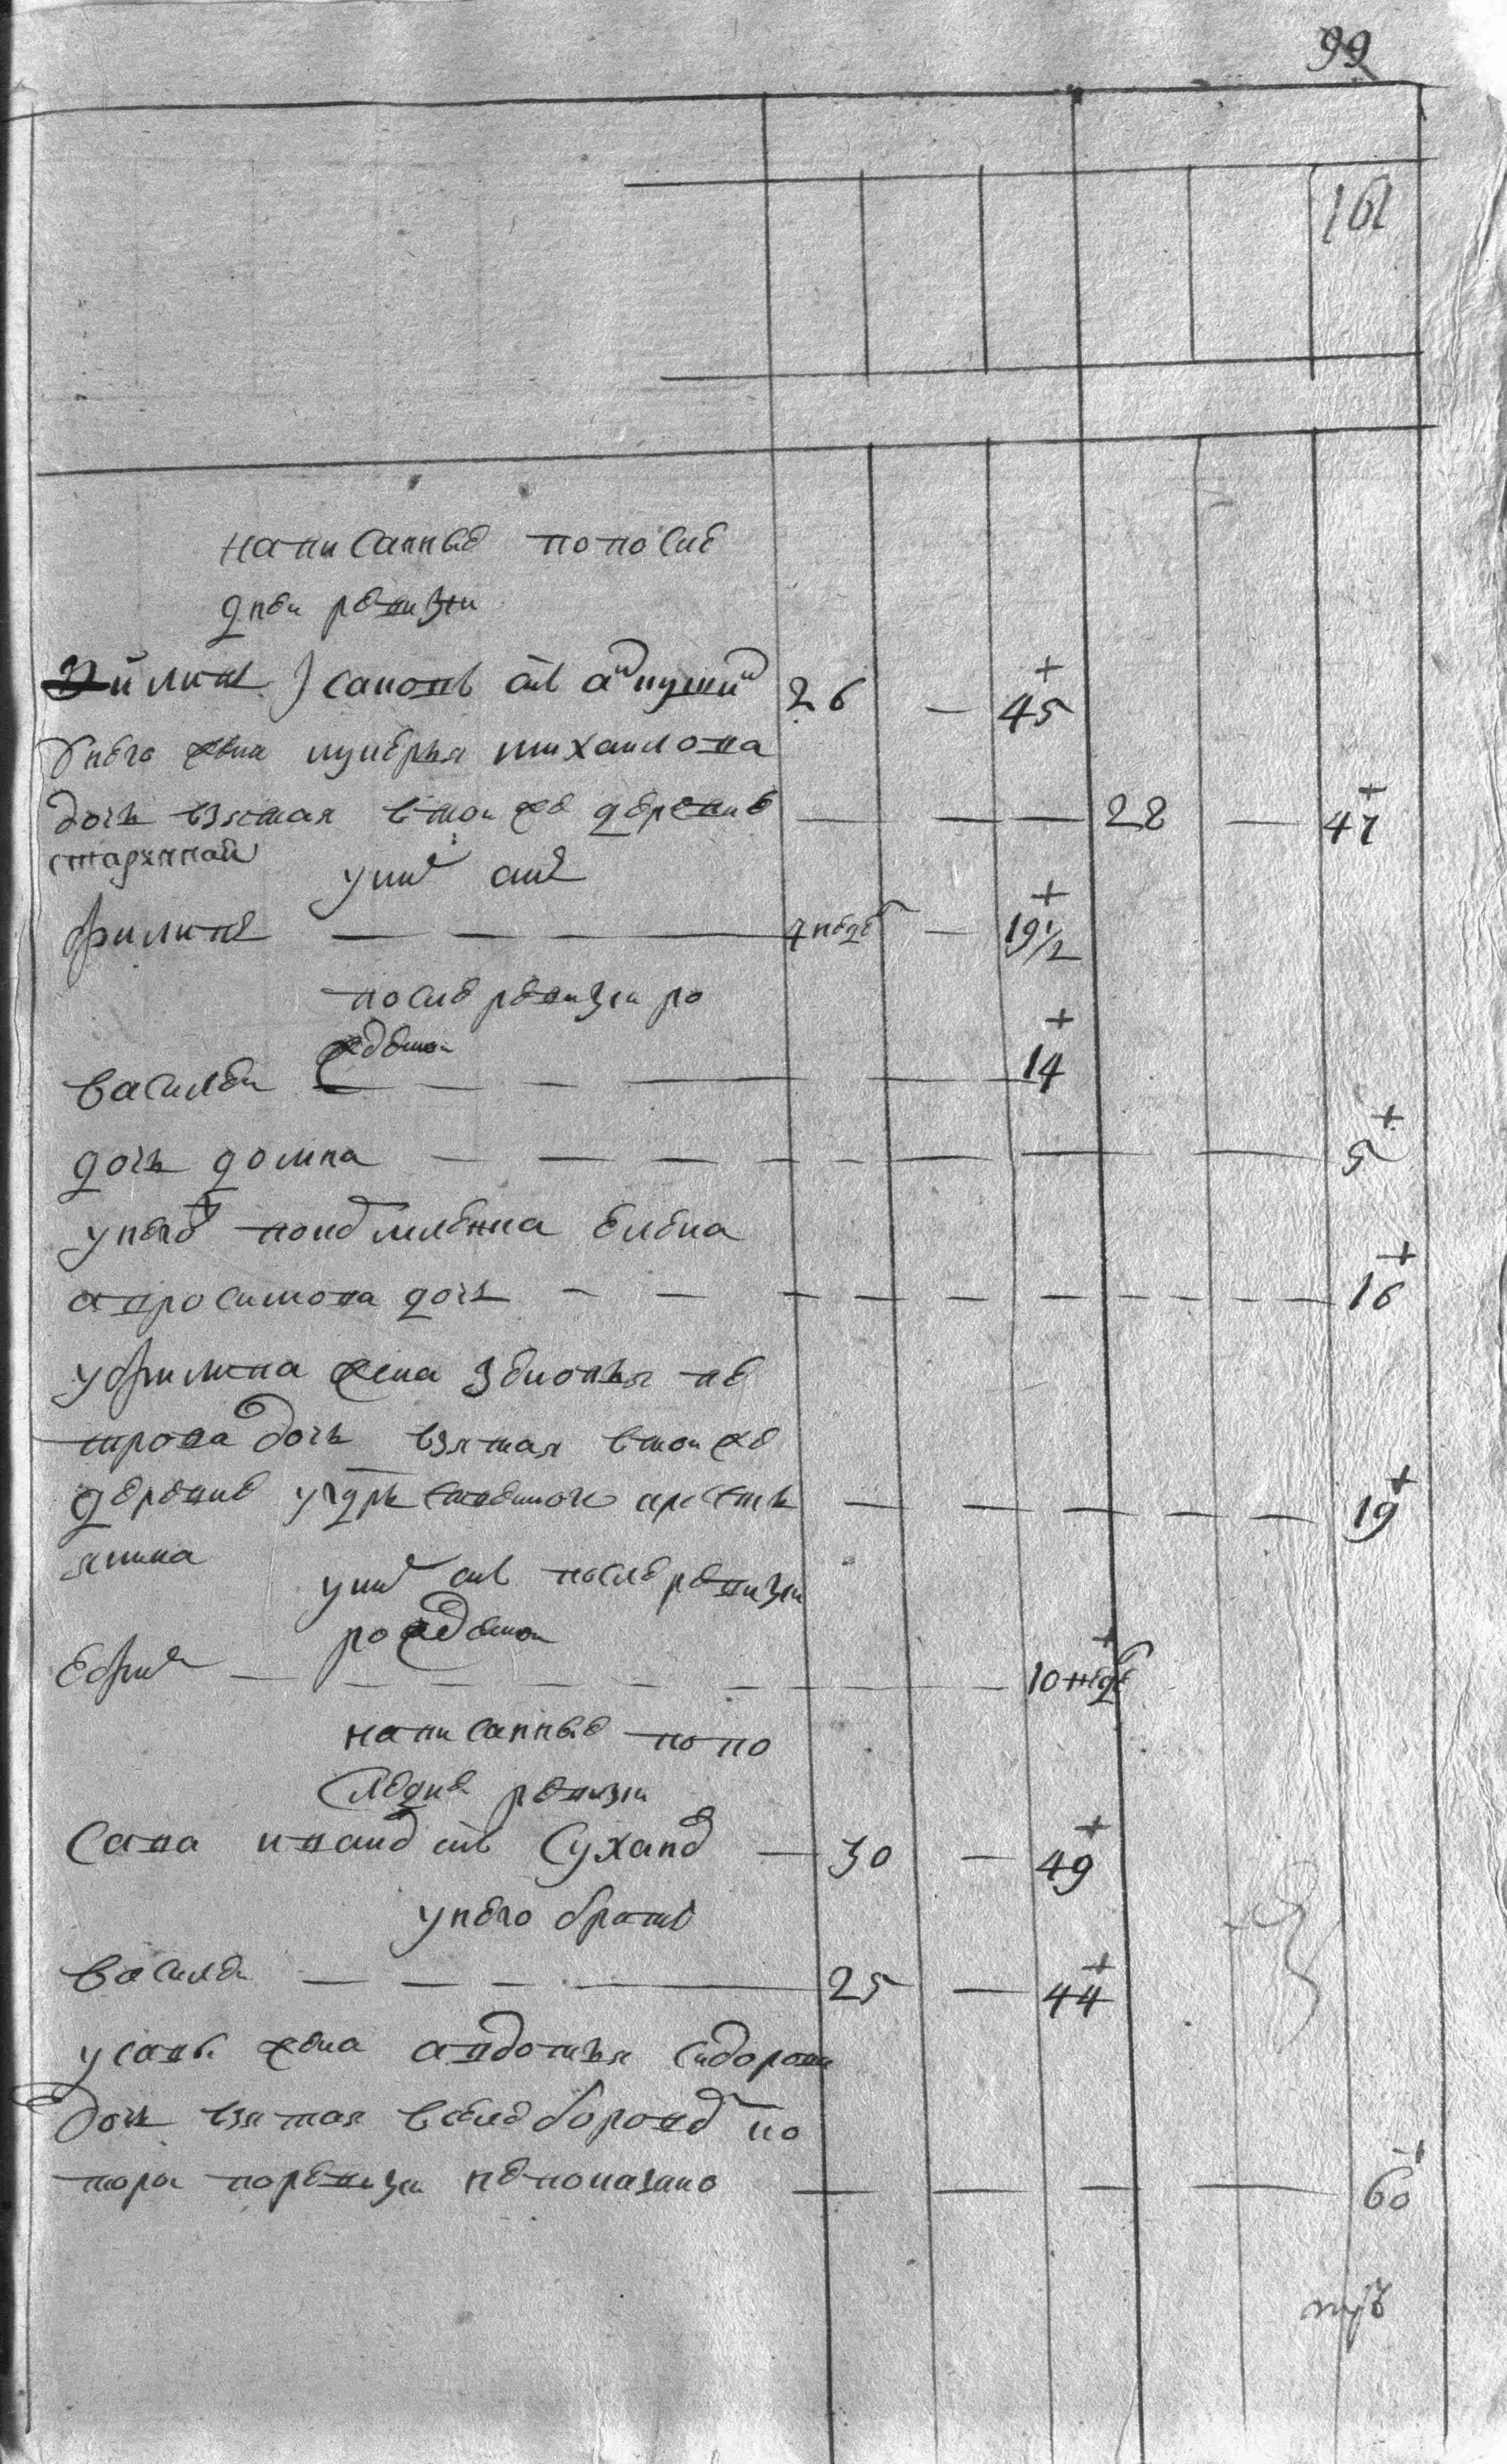 99
161
написанные по после
дней ревизи
саковъ снъ
26 — 45
У него жена лукерья михаилова
дочь взятая в тои же деревне — — — 28 — 47
старинная
у них снъ
филипъ — — — 4 недб — 19 1/2
после ревизи ро
жденой
василеи — — — 14
дочь домна — — — 5
у него племенница елена
апросимова дочь — — — 16
у филипа жена зеновья пе
трова дочь взятая в тои же
деревне кресть — — — 19
янина
у них снъ после ревизи
рожденои
Ефим — — — 10 недб
написанные по по
следне ревизи
Сава иванов снъ Сухано — 30 — 49
у него братъ
василеи — — — 25 — 44
у савы жена авдотья сидорова
дочь взятая в селе борове ко
тора по ревизи не показано — — — 60